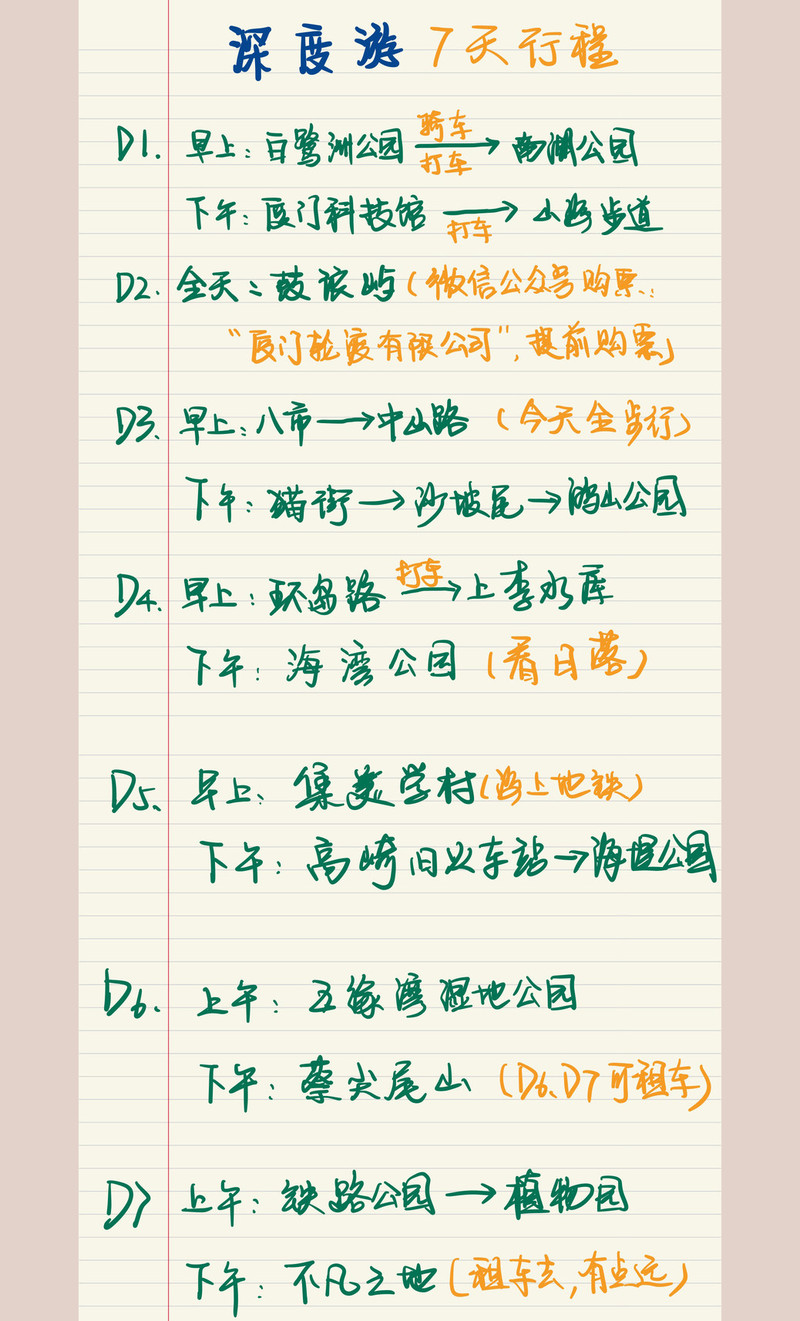 深度游 7天行程
D1. 早上：白鹭洲公园 骑车 打车 → 南湖公园
下午：厦门科技馆 打车 → 山海步道
D2. 全天：鼓浪屿（微信公众号购票：
“厦门轮渡有限公司”，提前购票）
D3. 早上：八市→中山路（今天全步行）
下午：猫街→沙坡尾→鸿山公园
D4. 早上：环岛路 打车 → 上李水库
下午：海湾公园（看日落）
D5. 早上：集美学村（海上地铁）
下午：高崎旧火车站→海堤公园
D6. 上午：五缘湾湿地公园
下午：蔡尖尾山（D6、D7可租车）
D7 上午：铁路公园→植物园
下午：不凡之地（租车去，有点远）